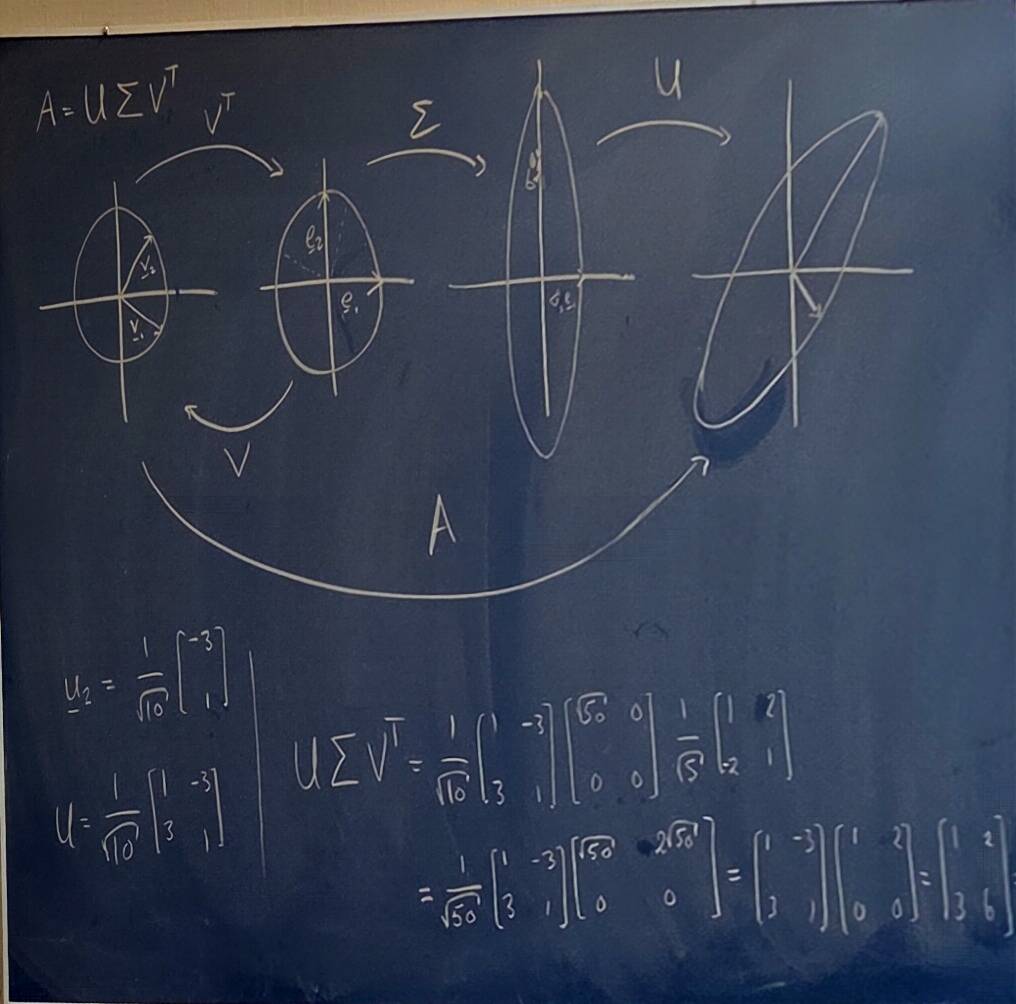 A = U Σ Vᵀ
Vᵀ
Σ
U
v₂
v₁
e₂
e₁
σ₁e₁
V
A
u₂ = 1/√10 [-3; 1]
U = 1/√10 [1 -3; 3 1]
U Σ Vᵀ = 1/√10 [1 -3; 3 1] [√50 0; 0 0] 1/√5 [1 2; -2 1]
= 1/√50 [1 -3; 3 1] [√50 2√50; 0 0] = [1 -3; 3 1] [1 2; 0 0] = [1 2; 3 6] =